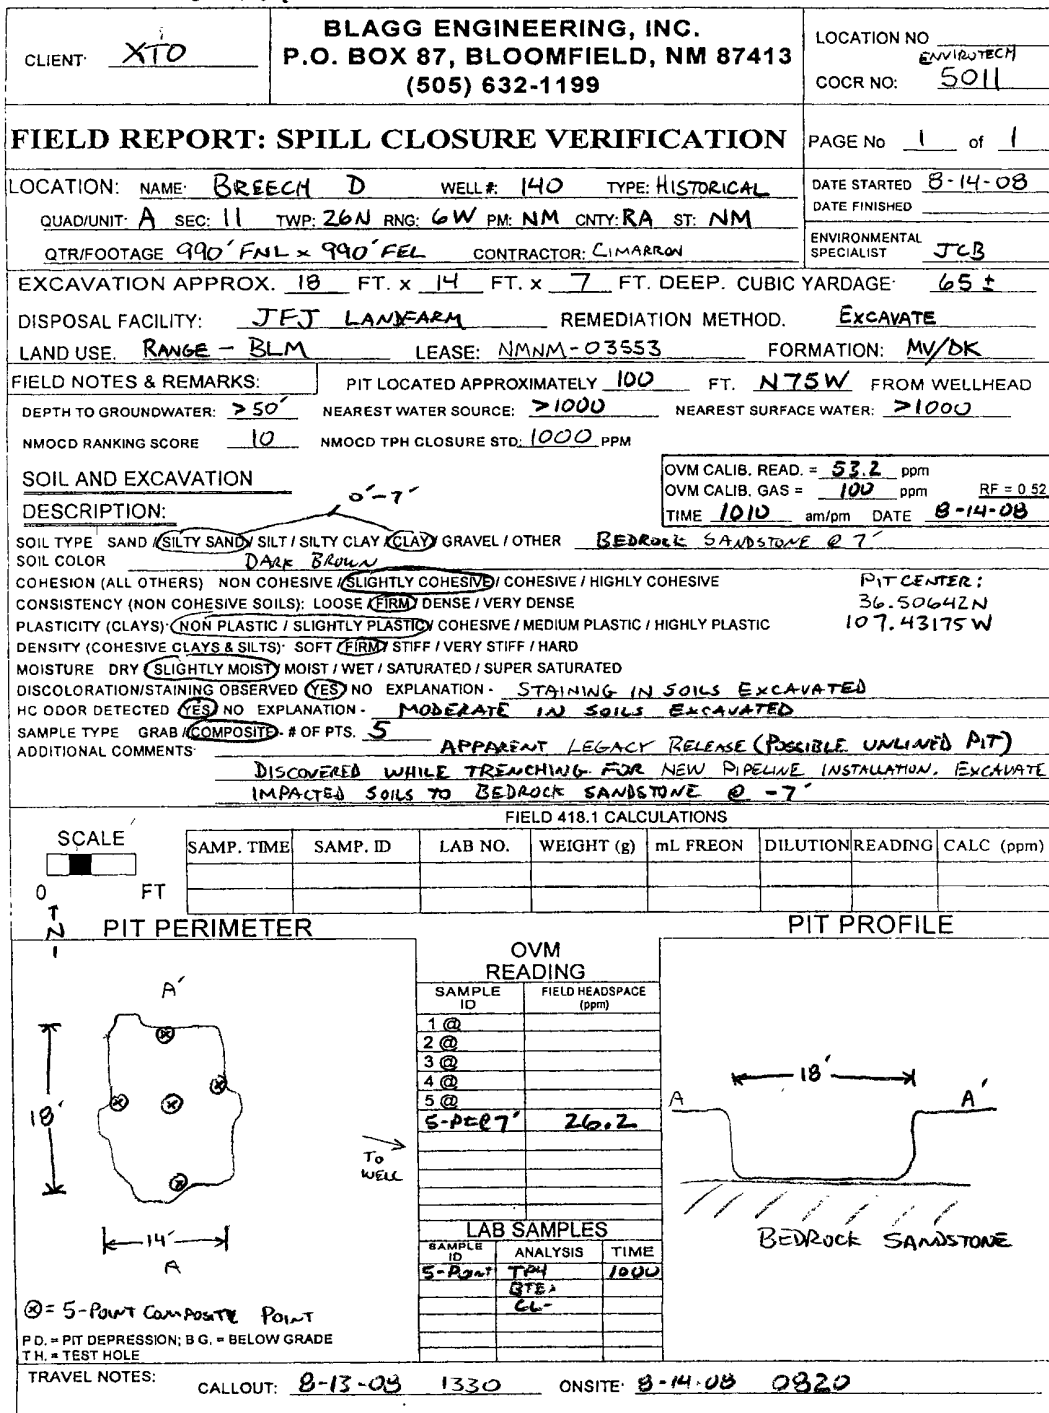 CLIENT: XTO
BLAGG ENGINEERING, INC.
P.O. BOX 87, BLOOMFIELD, NM 87413
(505) 632-1199
LOCATION NO
ENVIROTECH
COCR NO: 5011
FIELD REPORT: SPILL CLOSURE VERIFICATION
PAGE No 1 of 1
LOCATION: NAME: BREECH D WELL #: 140 TYPE: HISTORICAL
QUAD/UNIT: A SEC: 11 TWP: 26N RNG: 6W PM: NM CNTY: RA ST: NM
QTR/FOOTAGE 990' FNL x 990' FEL CONTRACTOR: CIMARRON
DATE STARTED 8-14-08
DATE FINISHED
ENVIRONMENTAL SPECIALIST JCB
EXCAVATION APPROX. 18 FT. x 14 FT. x 7 FT. DEEP. CUBIC YARDAGE: 65 ±
DISPOSAL FACILITY: JFJ LANDFARM REMEDIATION METHOD. EXCAVATE
LAND USE. RANGE - BLM LEASE: NMNM-03553 FORMATION: MV/DK
FIELD NOTES & REMARKS: PIT LOCATED APPROXIMATELY 100 FT. N75W FROM WELLHEAD
DEPTH TO GROUNDWATER: >50' NEAREST WATER SOURCE: >1000 NEAREST SURFACE WATER: >1000
NMOCD RANKING SCORE 10 NMOCD TPH CLOSURE STD: 1000 PPM
SOIL AND EXCAVATION
DESCRIPTION:
0'-7'
OVM CALIB. READ. = 53.2 ppm
OVM CALIB. GAS = 100 ppm RF = 0 52
TIME 1010 am/pm DATE 8-14-08
SOIL TYPE SAND / SILTY SAND / SILT / SILTY CLAY / CLAY / GRAVEL / OTHER BEDROCK SANDSTONE @ 7'
SOIL COLOR DARK BROWN
COHESION (ALL OTHERS) NON COHESIVE / SLIGHTLY COHESIVE / COHESIVE / HIGHLY COHESIVE
CONSISTENCY (NON COHESIVE SOILS): LOOSE / FIRM / DENSE / VERY DENSE
PLASTICITY (CLAYS): NON PLASTIC / SLIGHTLY PLASTIC / COHESIVE / MEDIUM PLASTIC / HIGHLY PLASTIC
DENSITY (COHESIVE CLAYS & SILTS): SOFT / FIRM / STIFF / VERY STIFF / HARD
MOISTURE DRY / SLIGHTLY MOIST / MOIST / WET / SATURATED / SUPER SATURATED
PIT CENTER:
36.50642N
107.43175W
DISCOLORATION/STAINING OBSERVED YES / NO EXPLANATION - STAINING IN SOILS EXCAVATED
HC ODOR DETECTED YES / NO EXPLANATION - MODERATE IN SOILS EXCAVATED
SAMPLE TYPE GRAB / COMPOSITE - # OF PTS. 5
ADDITIONAL COMMENTS: APPARENT LEGACY RELEASE (POSSIBLE UNLINED PIT)
DISCOVERED WHILE TRENCHING FOR NEW PIPELINE INSTALLATION. EXCAVATE
IMPACTED SOILS TO BEDROCK SANDSTONE @ -7'
FIELD 418.1 CALCULATIONS
SCALE
0 FT
SAMP. TIME SAMP. ID LAB NO. WEIGHT (g) mL FREON DILUTION READING CALC (ppm)
N
PIT PERIMETER
PIT PROFILE
OVM
READING
SAMPLE ID FIELD HEADSPACE (ppm)
1 @
2 @
3 @
4 @
5 @
5-Pt@7' 26.2
A'
18'
14'
A
TO WELL
18'
A A'
BEDROCK SANDSTONE
LAB SAMPLES
SAMPLE ID ANALYSIS TIME
5-Point TPH 1000
BTEX
CL-
⊗ = 5-POINT COMPOSITE POINT
P D. = PIT DEPRESSION; B G. = BELOW GRADE
T H. = TEST HOLE
TRAVEL NOTES: CALLOUT: 8-13-08 1330 ONSITE: 8-14-08 0820